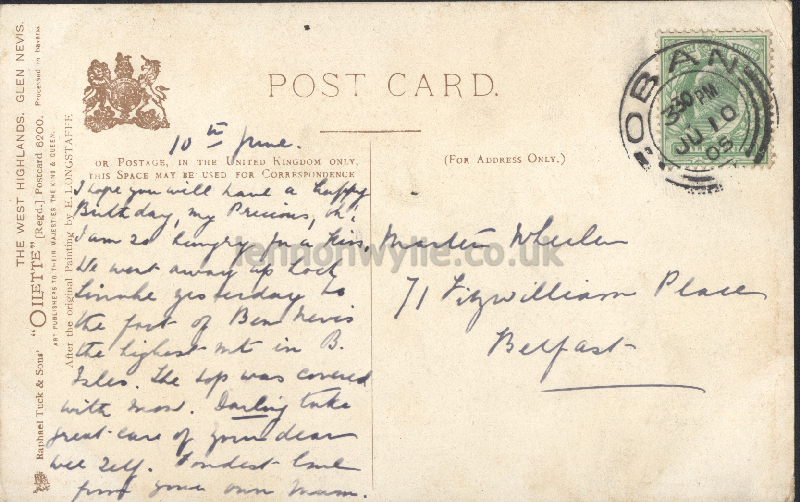 POST CARD.
10th June.
FOR POSTAGE, IN THE UNITED KINGDOM ONLY,
THIS SPACE MAY BE USED FOR CORRESPONDENCE
(FOR ADDRESS ONLY.)
I hope you will have a happy
Birthday, my Precious, oh,
I am so hungry for a kiss.
We went away up Loch
Linnhe yesterday to
the foot of Ben Nevis
the highest mt in B.
Isles. The top was covered
with snow. Darling take
great care of your dear
wee self. Fondest love
from your own Mum.
Master Wheeler
71 Fitzwilliam Place
Belfast
OBAN
3 30 PM
JU 10
05
THE WEST HIGHLANDS. GLEN NEVIS.
"OILETTE" [Regd.] Postcard 6200. Processed in Bavaria.
Raphael Tuck & Sons'
ART PUBLISHERS TO THEIR MAJESTIES THE KING & QUEEN.
After the original Painting by E. LONGSTAFFE
lennonwylie.co.uk